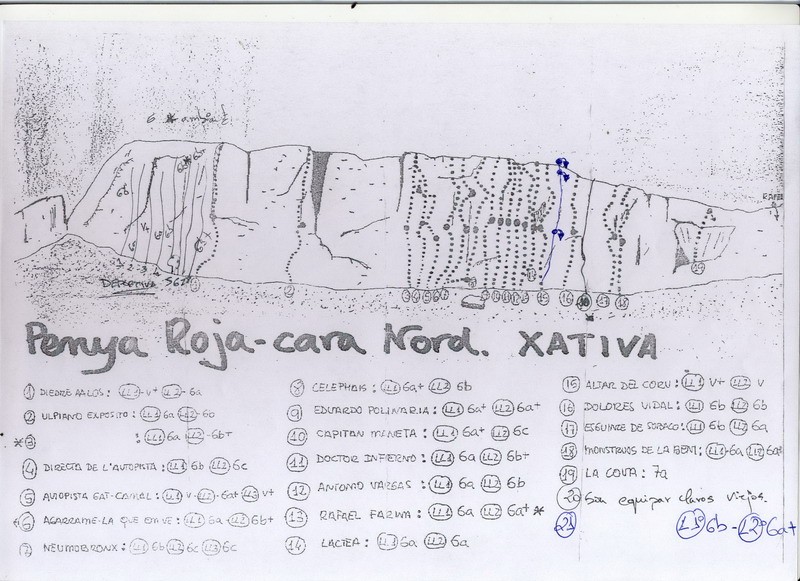 6b
V+
Penya Roja-cara Nord. XATIVA
① DIEDRE : LL1 - V+ LL2 - 6a
② ULPIANO EXPOSITO : LL1 6a LL2 -
*③ : LL1 6a LL2 - 6b+
④ DIRECTA DE L'AUTOPISTA : LL1 6b LL2 6c
⑤ AUTOPISTA : LL1 V - LL2 - 6a+ LL3 V+
⑥ AGARRAME-LA QUE : LL1 6a - LL2 6b+
⑦ NEUMOBRONX : LL1 6b LL2 6c LL3 6c
⑧ CELEPHAIS : LL1 6a+ LL2 6b
⑨ EDUARDO POLINARIA : LL1 6a+ LL2 6a+
⑩ CAPITAN MANETA : LL1 6a+ LL2 6c
⑪ DOCTOR INFIERNO : LL1 6a LL2 6b+
⑫ ANTONIO VARGAS : LL1 6a LL2 6b
⑬ RAFAEL FARINA : LL1 6a LL2 6a+ *
⑭ LACTEA : LL1 6a LL2 6a
⑮ ALTAR DEL CORU : LL1 V+ LL2 V
⑯ DOLORES VIDAL : LL1 6b LL2 6b
⑰ ESGUINZE DE SOBACO : LL1 6b LL2 6a
⑱ MONSTRUOS DE LA BENI : LL1 - 6a LL2
⑲ LA COVA : 7a
⑳ Sin equipar clavos viejos.
㉑ L1º 6b - L2º 6a+